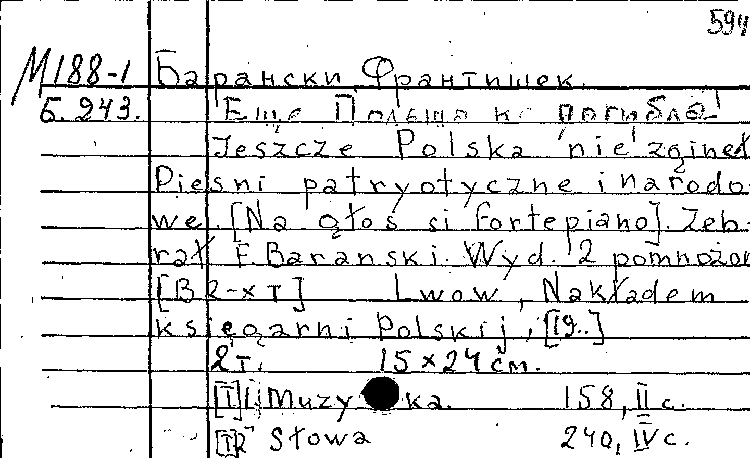 594
М188-1 Барански, Франтишек.
Б. 243. "Еще Польша не погибла!"
Jeszcze Polska nie zgineł
Piesni patryotyczne i narodo
we. [Na głos si fortepiano]. Zeb-
rał F. Baranski. Wyd. 2 pomnożon
[В 2-х т] Lwow, Nakładem
ksiegarni Polskij, [19..]
2 т. 15 x 24 см.
[I] Muzy ka. 158, II с.
[II] Słowa 240, IV с.